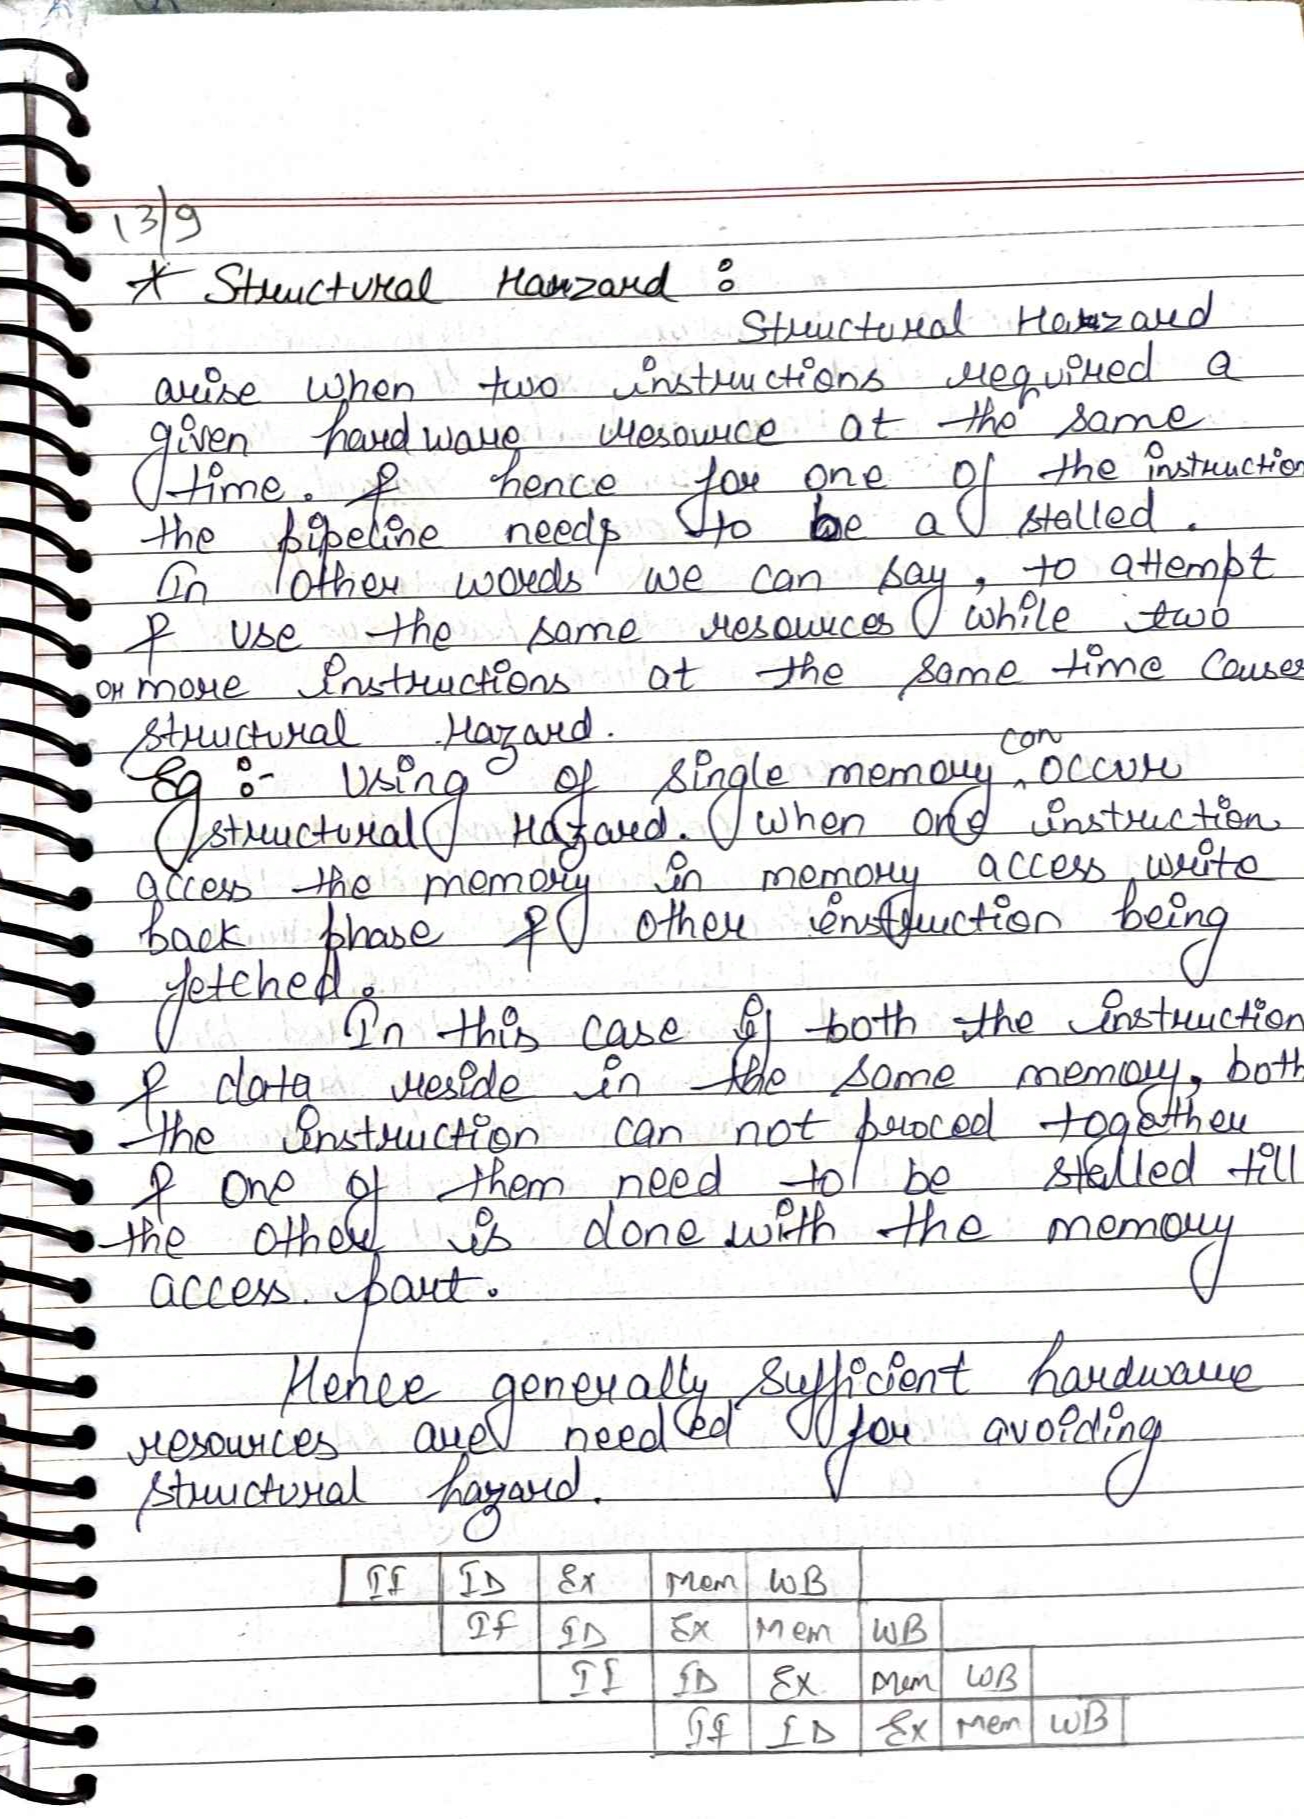 13/9
* Structural Harzard :
Structural Harzard
arise when two instructions required a
given hardware resource at the same
time. & hence for one of the instruction
the pipeline needs to be a stalled.
In other words we can say, to attempt
& use the same resources while two
or more instructions at the same time causes
structural Hazard.
Eg :- Using of single memory can occur
structural Hazard. When one instruction
access the memory in memory access write
back phase & other instruction being
fetched.
In this case if both the instruction
& data reside in the same memory, both
the instruction can not proced together
& one of them need to be stalled till
the other is done with the memory
access part.
Hence generally sufficient hardware
resources are needed for avoiding
structural hazard.
IF ID Ex Mem WB
IF ID Ex Mem WB
IF ID Ex Mem WB
IF ID Ex Mem WB